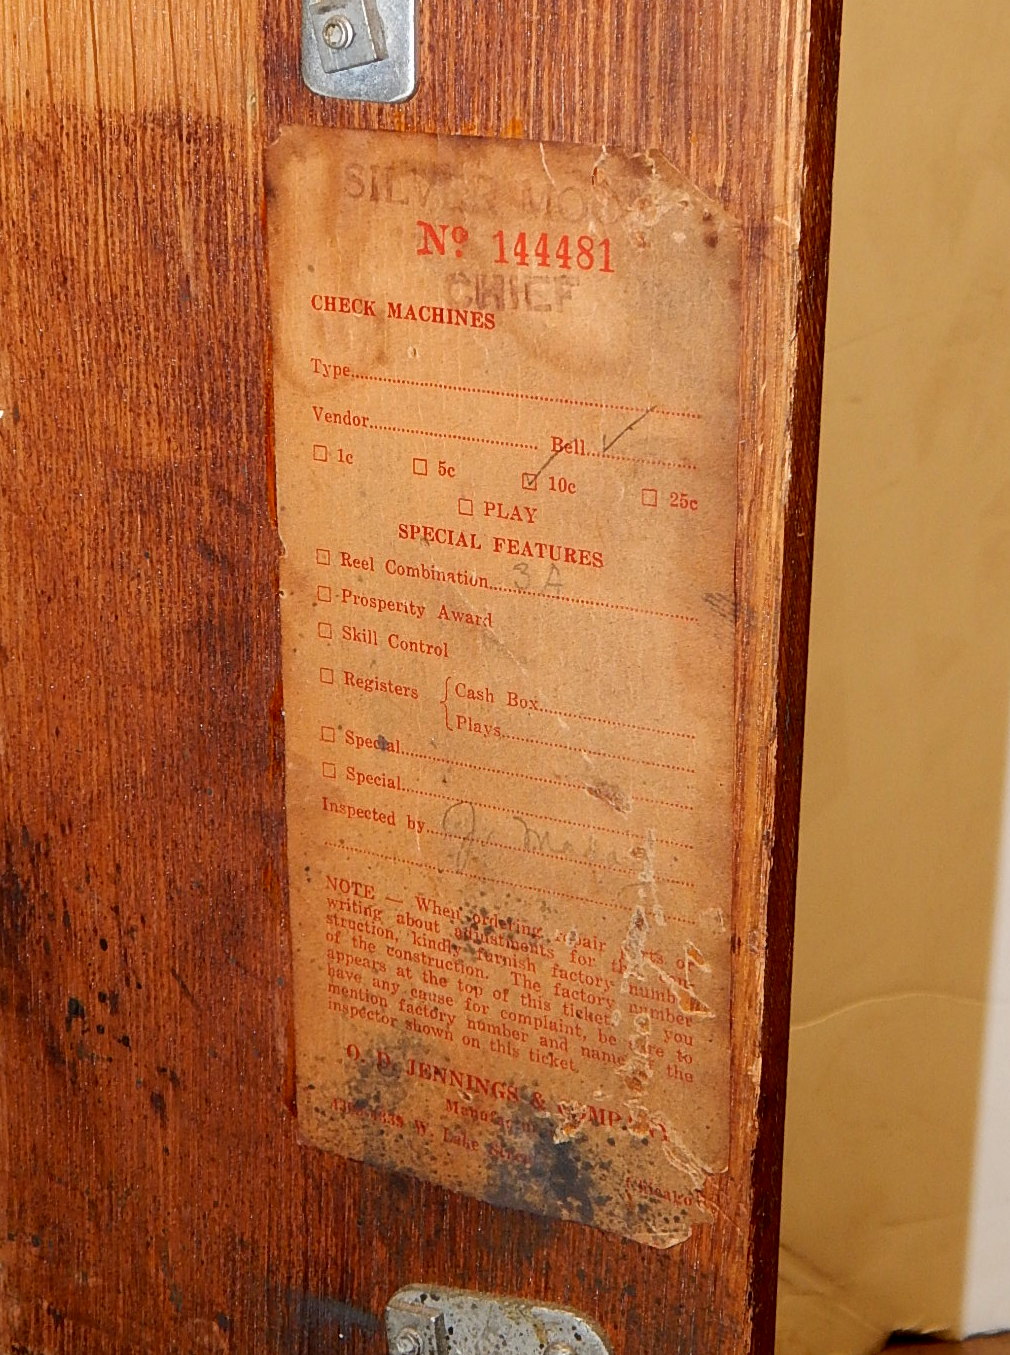 SILVER MOON
Nº 144481
CHIEF
CHECK MACHINES
Type
Vendor Bell
☐ 1c ☐ 5c ☑ 10c ☐ 25c
☐ PLAY
SPECIAL FEATURES
☐ Reel Combination 3 A
☐ Prosperity Award
☐ Skill Control
☐ Registers { Cash Box
Plays
☐ Special
☐ Special
Inspected by
NOTE — When ordering repair parts or
writing about adjustments for
struction, kindly furnish factory number
of the construction. The factory number
appears at the top of this ticket. you
have any cause for complaint, be sure to
mention factory number and name the
inspector shown on this ticket.
O. D. JENNINGS & COMPANY
W. Lake Chicago